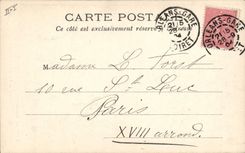 II-I
CARTE POSTALE
Ce côté est exclusivement réservé
ORLEANS-GARE
LOIRET
ORLEANS-GARE
Madame L. Torst
10 rue St Luc
Paris
XVIII arrond.